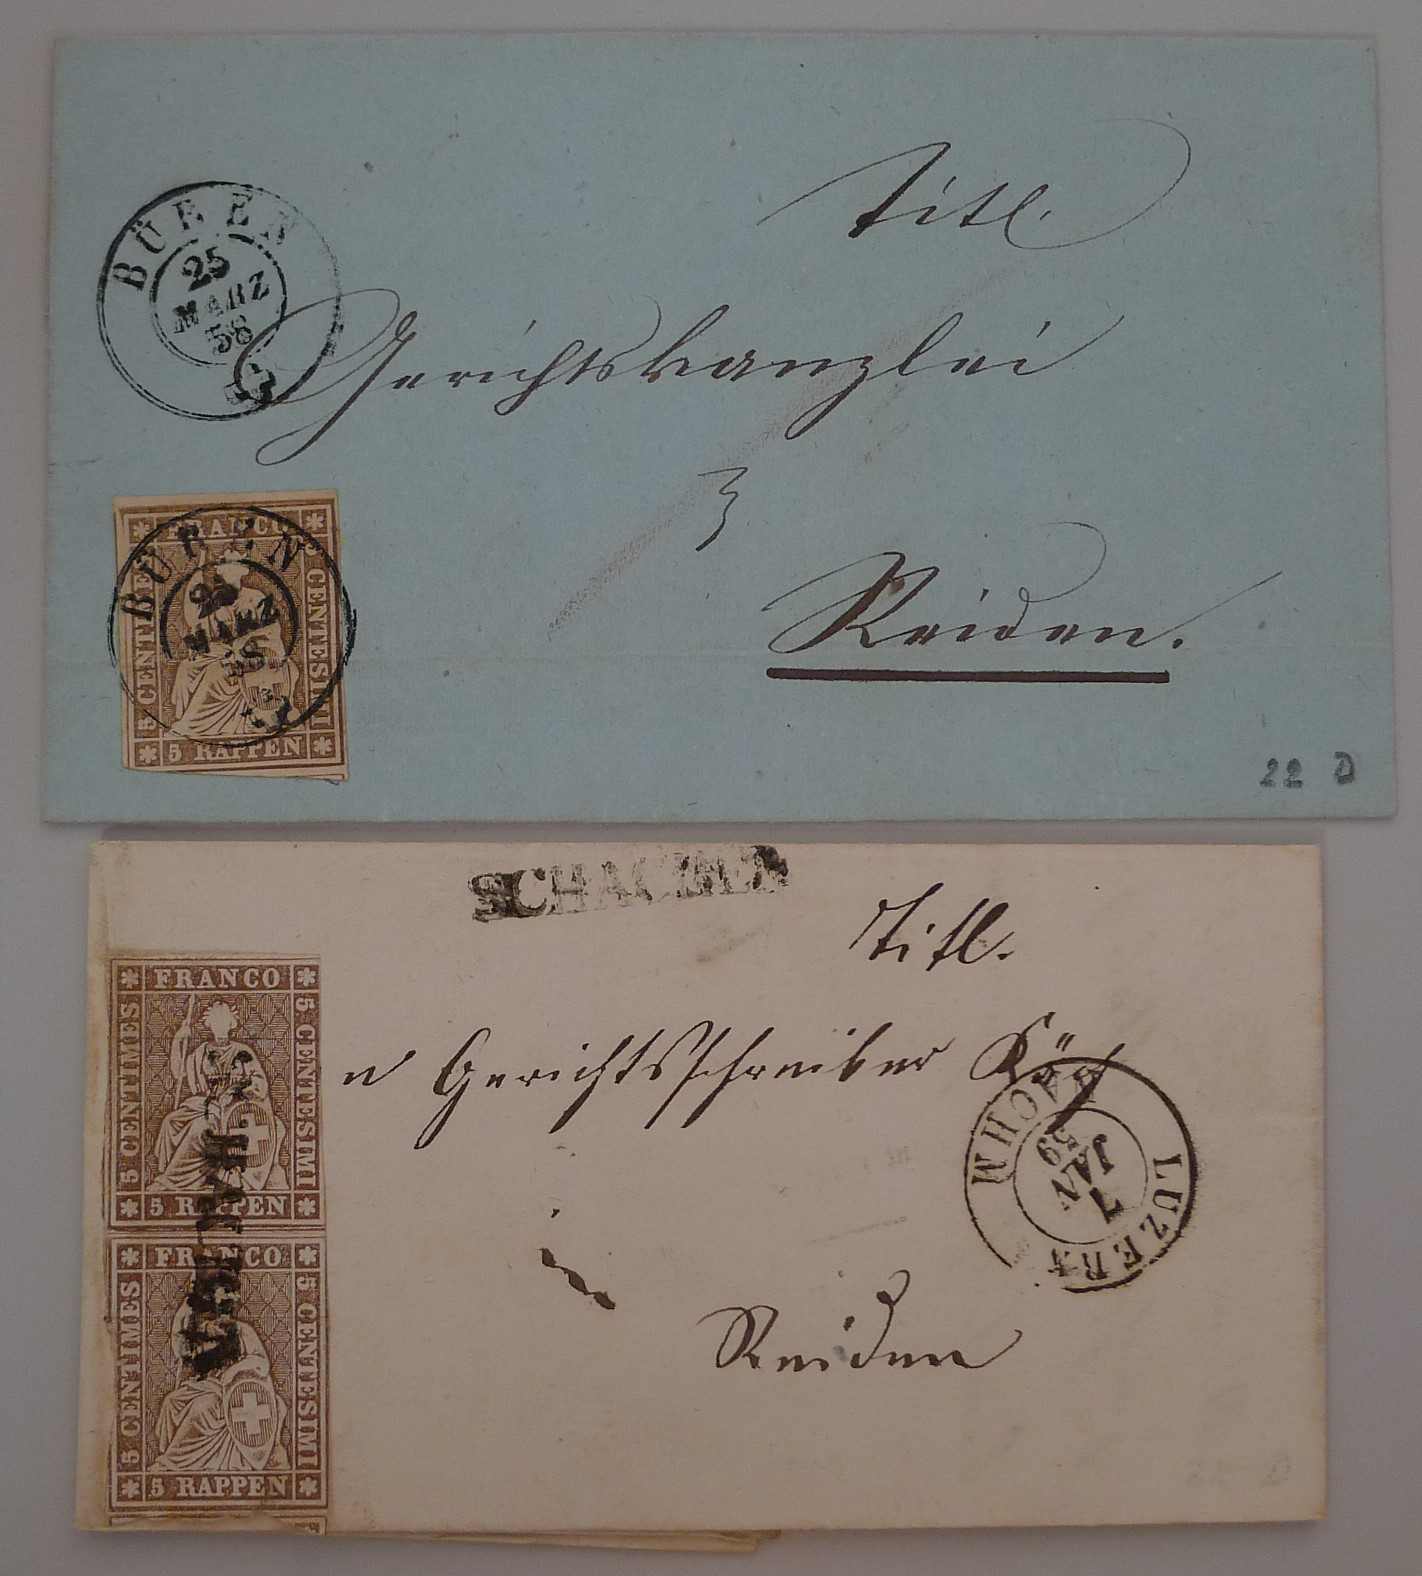 BÜREN
25
MÄRZ
58
Titl.
Gerichtskanzlei
Reiden.
FRANCO
5 CENTIMES
5 CENTESIMI
5 RAPPEN
BÜREN
25
MÄRZ
58
22 D
SCHACHEN
Titl.
Gerichtsschreiber
in
Reiden
FRANCO
5 CENTIMES
5 CENTESIMI
5 RAPPEN
FRANCO
5 CENTIMES
5 CENTESIMI
5 RAPPEN
SCHACHEN
LUZERN
7
JAN
59
NACHM
22 D